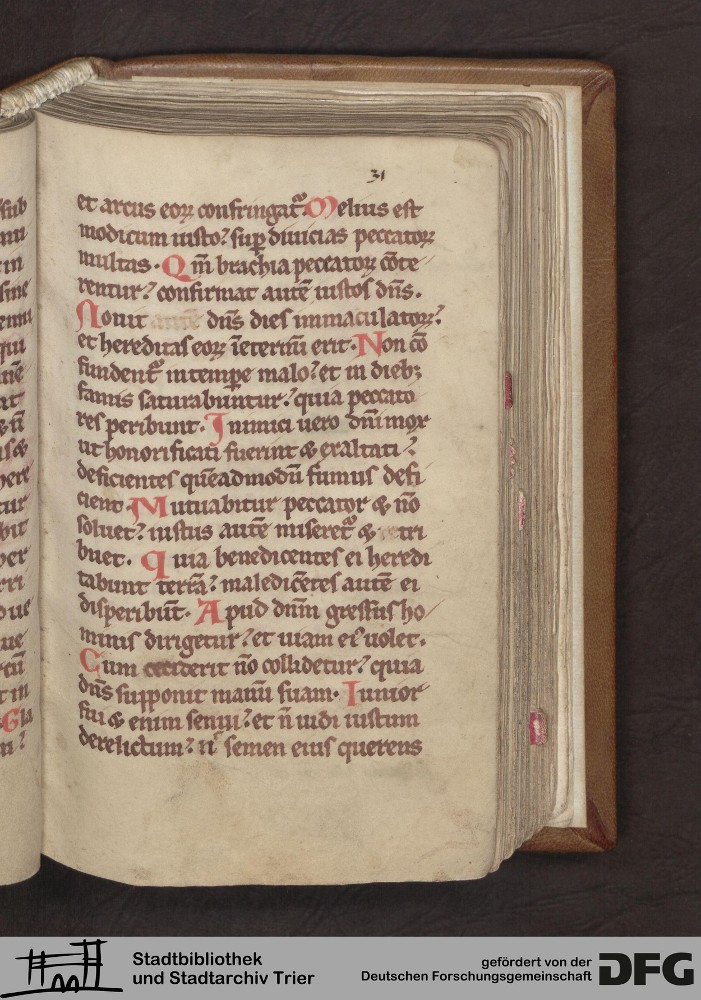 31
et arcus eoꝝ confringat᷑. Melius est
modicum iusto? suꝑ diuicias peccatoꝝ
multas. Qm̄ brachia peccatoꝝ cōte
rentur? confirmat autē iustos dn̄s.
Nouit autē dn̄s dies immaculatoꝝ?
et hereditas eoꝝ īeternū erit. Non cō
fundent᷑ in tempe malo? et in diebꝫ
famis saturabuntur? quia peccato
res peribunt. Inimici uero dn̄i mox
ut honorificati fuerint & exaltati?
deficientes quēadmodū fumus defi
cient. Mutuabitur peccator & nō
soluet? iustus autē miseret᷑ & tri
buet. Quia benedicentes ei heredi
tabunt terrā? maledicētes autē ei
disperibūt. Apud dn̄m gressus ho
minis dirigetur? et uiam eiꝰ uolet.
Cum ceciderit nō collidetur? quia
dn̄s supponit manū suam. Iunior
fui & enim senui? et n̄ uidi iustum
derelictum? n̄ semen eius querens
sub
in
sine
qui
Gla
Stadtbibliothek
und Stadtarchiv Trier
gefördert von der
Deutschen Forschungsgemeinschaft
DFG